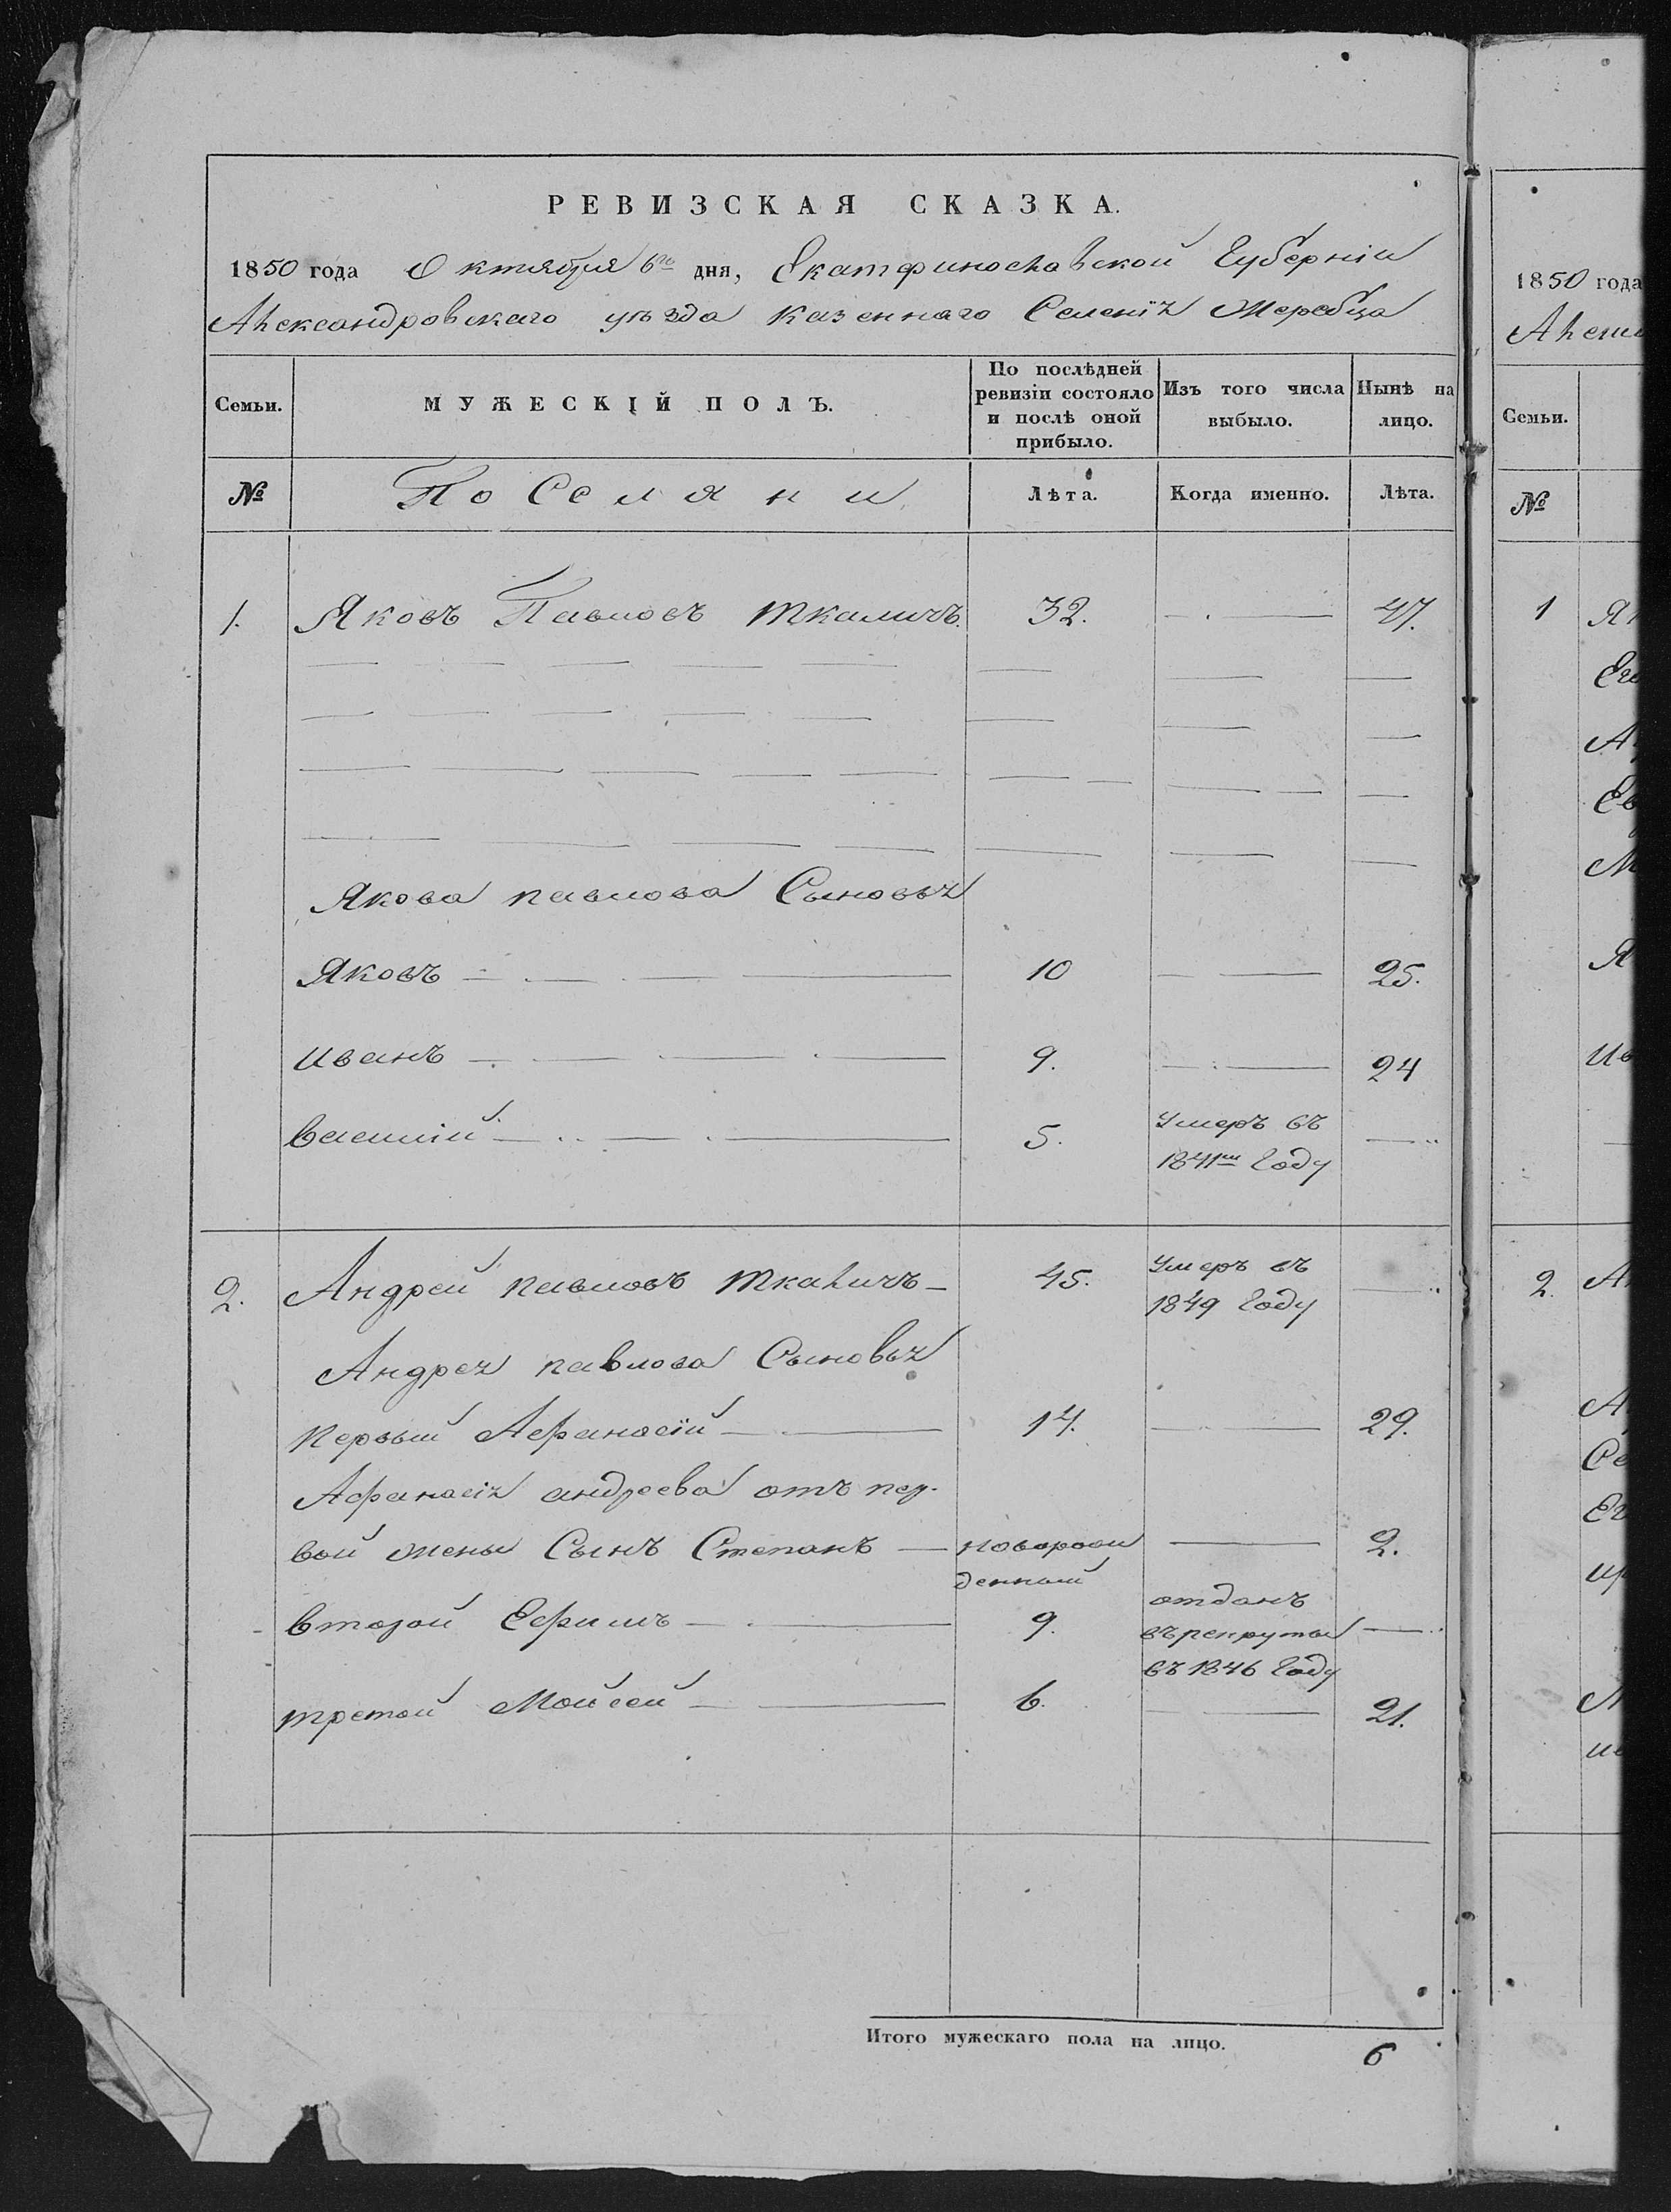 РЕВИЗСКАЯ СКАЗКА.
1850 года Октября 6го дня, Екатериносла́вской Губерніи
Александровскаго уѣзда казеннаго Селенія Жеребца
Семьи. МУЖЕСКІЙ ПОЛЪ. По послѣдней ревизіи состояло и послѣ оной прибыло. Изъ того числа выбыло. Нынѣ на лицо.
№ Поселяни Лѣта. Когда именно. Лѣта.
1. Яковъ Павловъ Ткаличъ. 32. 47.
Якова павлова Сыновья
Яковъ 10 25.
Иванъ 9. 24
василій 5. Умеръ въ
1841м Году
2. Андрей павловъ Ткаличъ 45. Умеръ въ
1849 Году
Андрея павлова Сыновья
первый Афанасій 14. 29.
Афанасія андреева отъ пер-
вой жены Сынъ Степанъ новорож 2.
денный
второй Ефимъ 9. отданъ
въ рекруты
въ 1846 Году
третой Мойсей 6. 21.
Итого мужескаго пола на лицо. 6
1850 года
Семьи.
№
1
2.